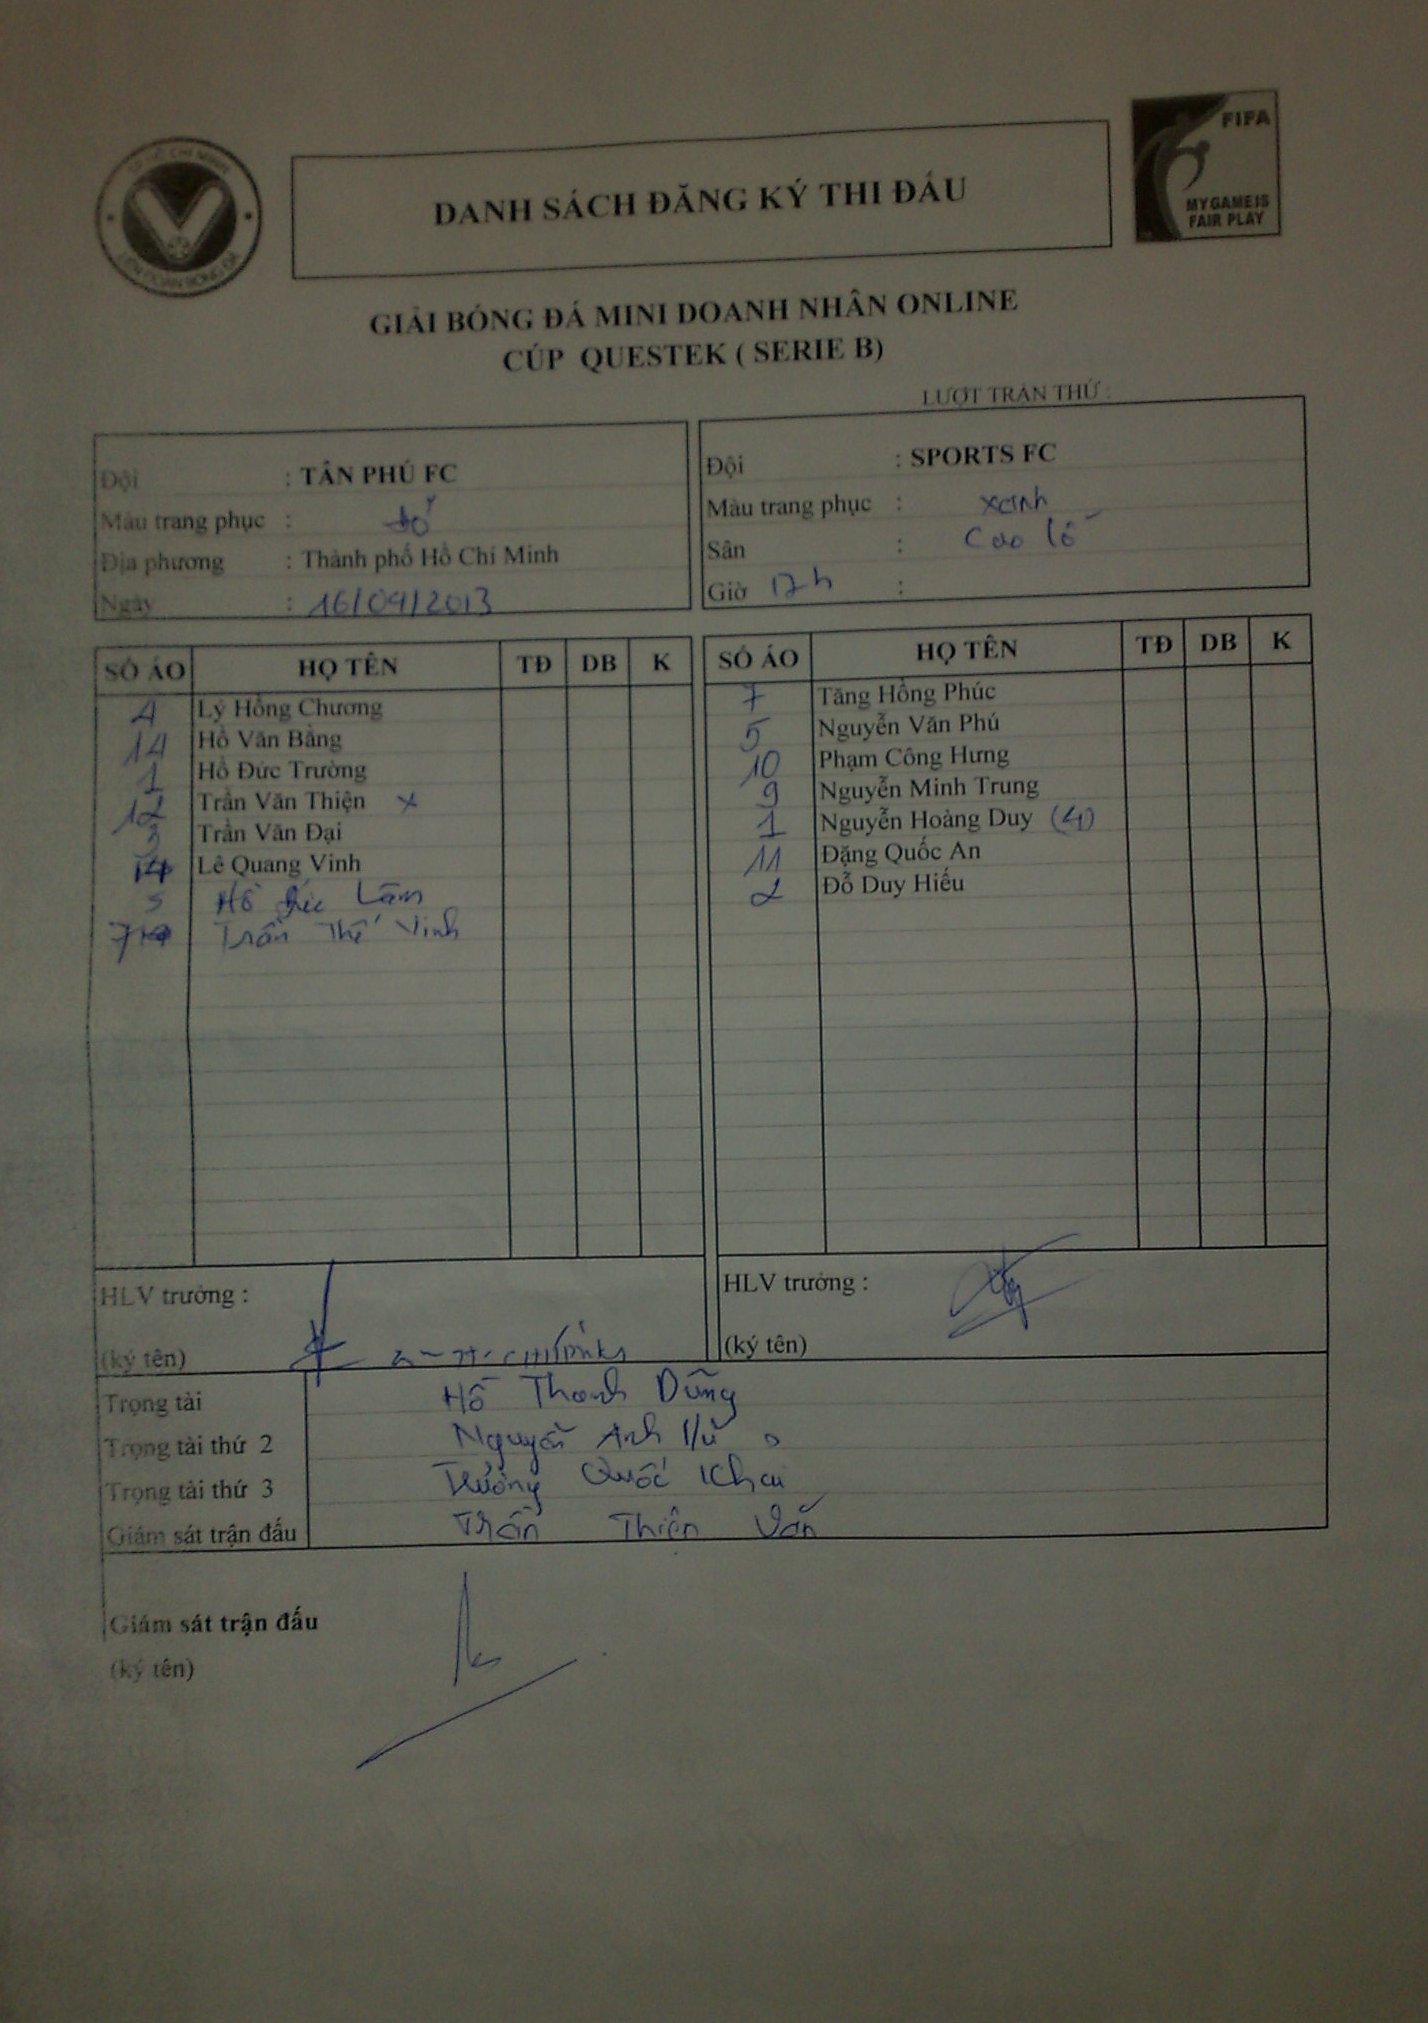 TP HỒ CHÍ MINH
LIÊN ĐOÀN BÓNG ĐÁ
DANH SÁCH ĐĂNG KÝ THI ĐẤU
FIFA
MY GAME IS
FAIR PLAY
GIẢI BÓNG ĐÁ MINI DOANH NHÂN ONLINE
CÚP QUESTEK ( SERIE B)
LƯỢT TRẬN THỨ :
Đội : TÂN PHÚ FC
Màu trang phục : đỏ
Địa phương : Thành phố Hồ Chí Minh
Ngày : 16/04/2013
Đội : SPORTS FC
Màu trang phục : xanh
Sân : Cao lỗ
Giờ 17h :
SỐ ÁO HỌ TÊN TĐ DB K
4 Lý Hồng Chương
14 Hồ Văn Bằng
1 Hồ Đức Trường
12 Trần Văn Thiện x
3 Trần Văn Đại
Lê Quang Vinh
5 Hồ Đức Lâm
7 Trần Thế Vinh
SỐ ÁO HỌ TÊN TĐ DB K
7 Tăng Hồng Phúc
5 Nguyễn Văn Phú
10 Phạm Công Hưng
9 Nguyễn Minh Trung
1 Nguyễn Hoàng Duy (4)
11 Đặng Quốc An
2 Đỗ Duy Hiếu
HLV trưởng :
(ký tên)
HLV trưởng :
(ký tên)
Trọng tài Hồ Thanh Dũng
Trọng tài thứ 2 Nguyễn Anh Vũ
Trọng tài thứ 3 Trương Quốc Khai
Giám sát trận đấu Trần Thiện Văn
Giám sát trận đấu
(ký tên)